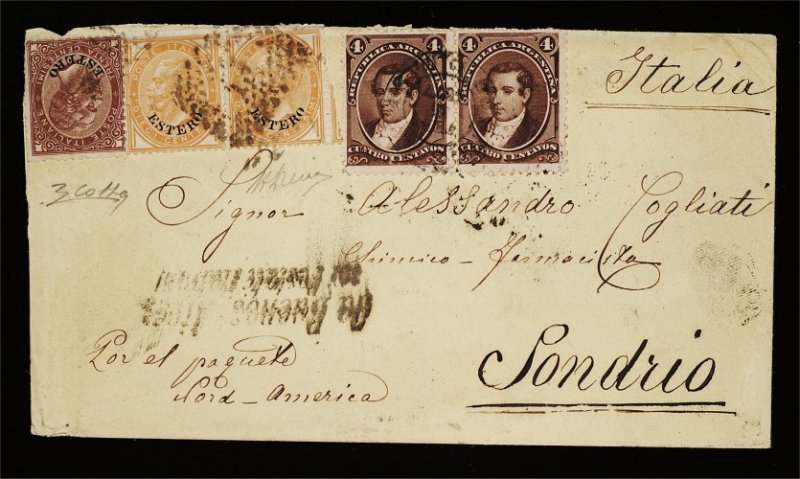 ESTERO
POSTE ITALIANE
ESTERO
ESTERO
4 4
REPUBLICA ARGENTINA
CUATRO CENTAVOS
4 4
REPUBLICA ARGENTINA
CUATRO CENTAVOS
Italia
Signor Alessandro Cogliati
Chimico-Farmacista
da Buenos Aires
Sondrio
Por el paquete
Nord-America